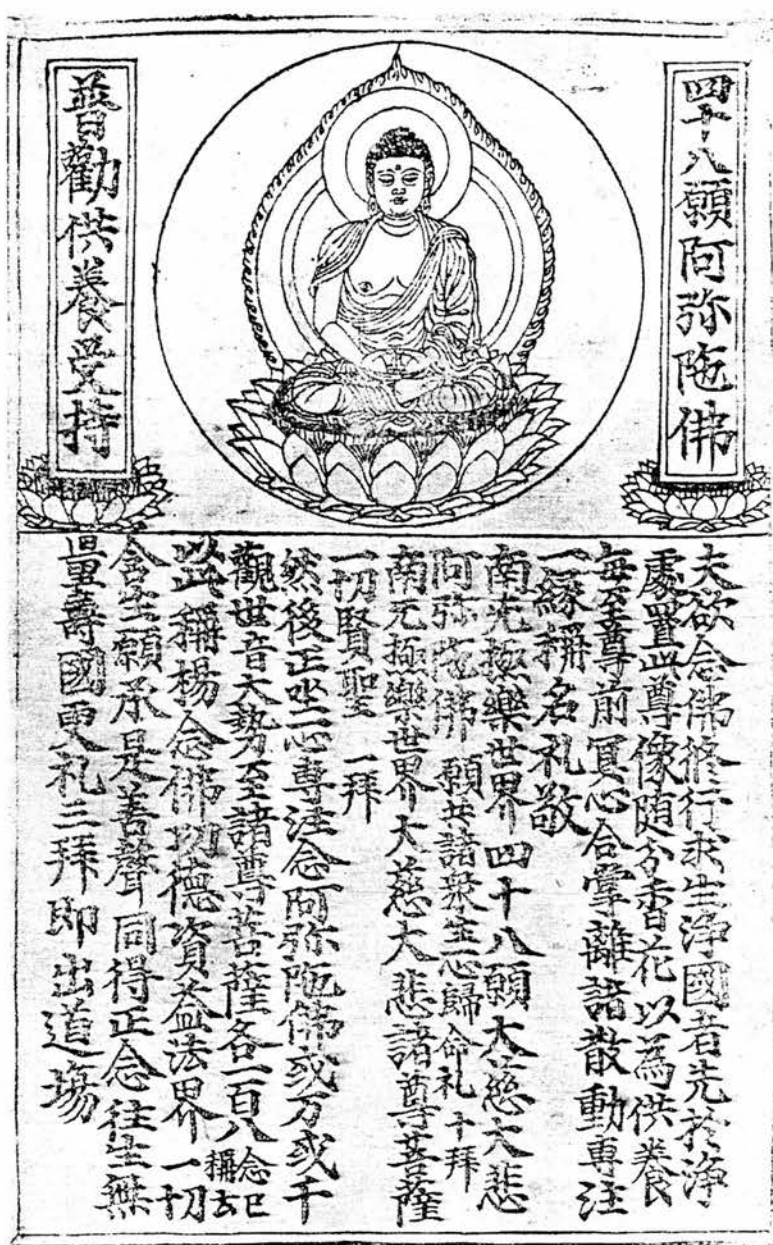 四十八願阿弥陁佛
普勸供養受持
夫欲念佛修行求生淨國者先於淨
處置此尊像随分香花以為供養
每至尊前冥心合掌離諸散動專注
一縁稱名礼敬
南无極樂世界四十八願大慈大悲
阿弥陁佛 願共諸衆生一心歸命礼十拜
南无極樂世界大慈大悲諸尊菩薩
一切賢聖 一拜
然後正坐一心專注念阿弥陁佛或万或千
觀世音大勢至諸尊菩薩各一百八 念已稱云
以此稱楊念佛功德資益法界一切
含生願承是善聲同得正念往生無
量壽國更礼三拜即出道場